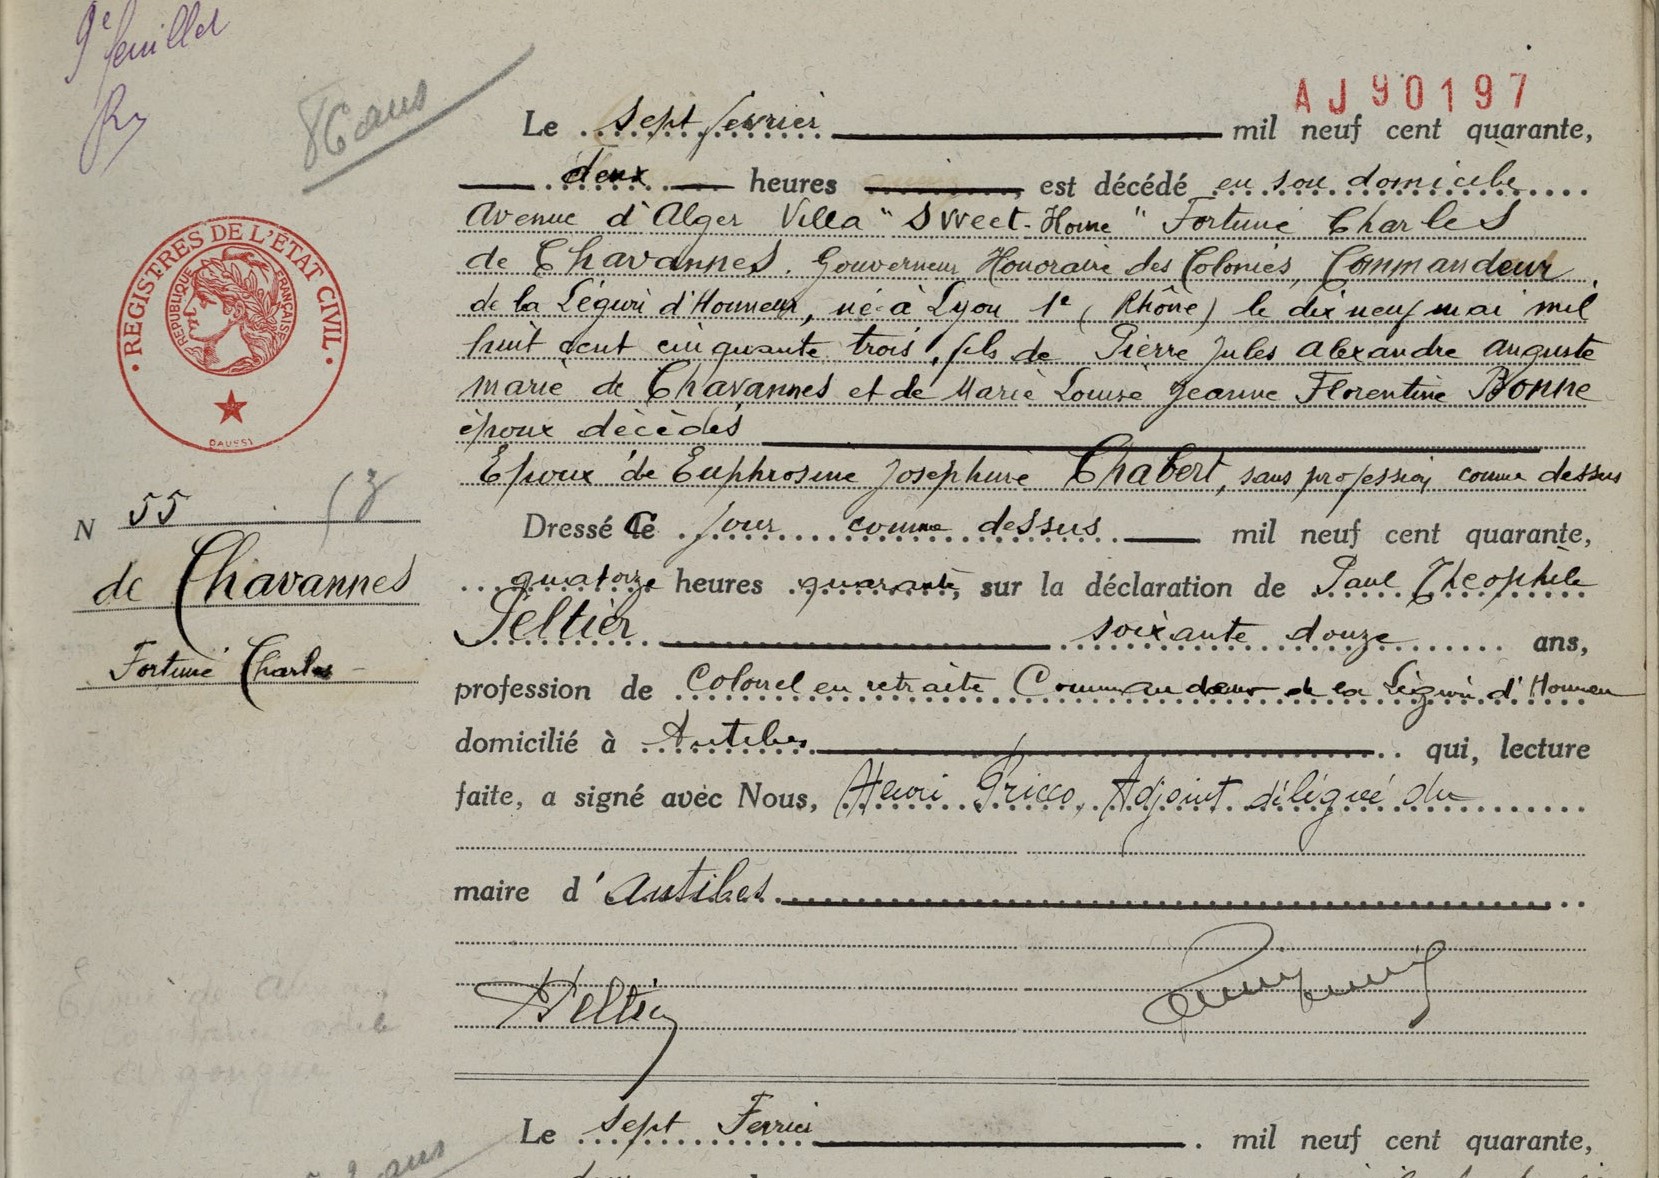 9e feuillet
86 ans
AJ90197
Le sept février mil neuf cent quarante,
deux heures est décédé en son domicile
Avenue d'Alger Villa "Sweet-Home" Fortuné Charles
de Chavannes. Gouverneur Honoraire des Colonies, Commandeur
de la Légion d'Honneur, né à Lyon 1e (Rhône) le dix neuf mai mil
huit cent cinquante trois, fils de Pierre Jules Alexandre Auguste
Marie de Chavannes et de Marie Louise Jeanne Florentine Bonne
époux décédés
Epoux de Euphrosine Josephine Chabert, sans profession comme dessus
REGISTRES DE L'ÉTAT CIVIL
RÉPUBLIQUE FRANÇAISE
DAUSSY
N 55
de Chavannes
Fortuné Charles
Dressé Ce jour comme dessus mil neuf cent quarante,
quatorze heures quarante, sur la déclaration de Paul Théophile
Peltier soixante douze ans,
profession de Colonel en retraite Commandeur de la Légion d'Honneur
domicilié à Antibes qui, lecture
faite, a signé avec Nous, Henri Pricco, Adjoint délégué du
maire d'Antibes
Peltier
Epoux de
Le sept Fevrier mil neuf cent quarante,
ans